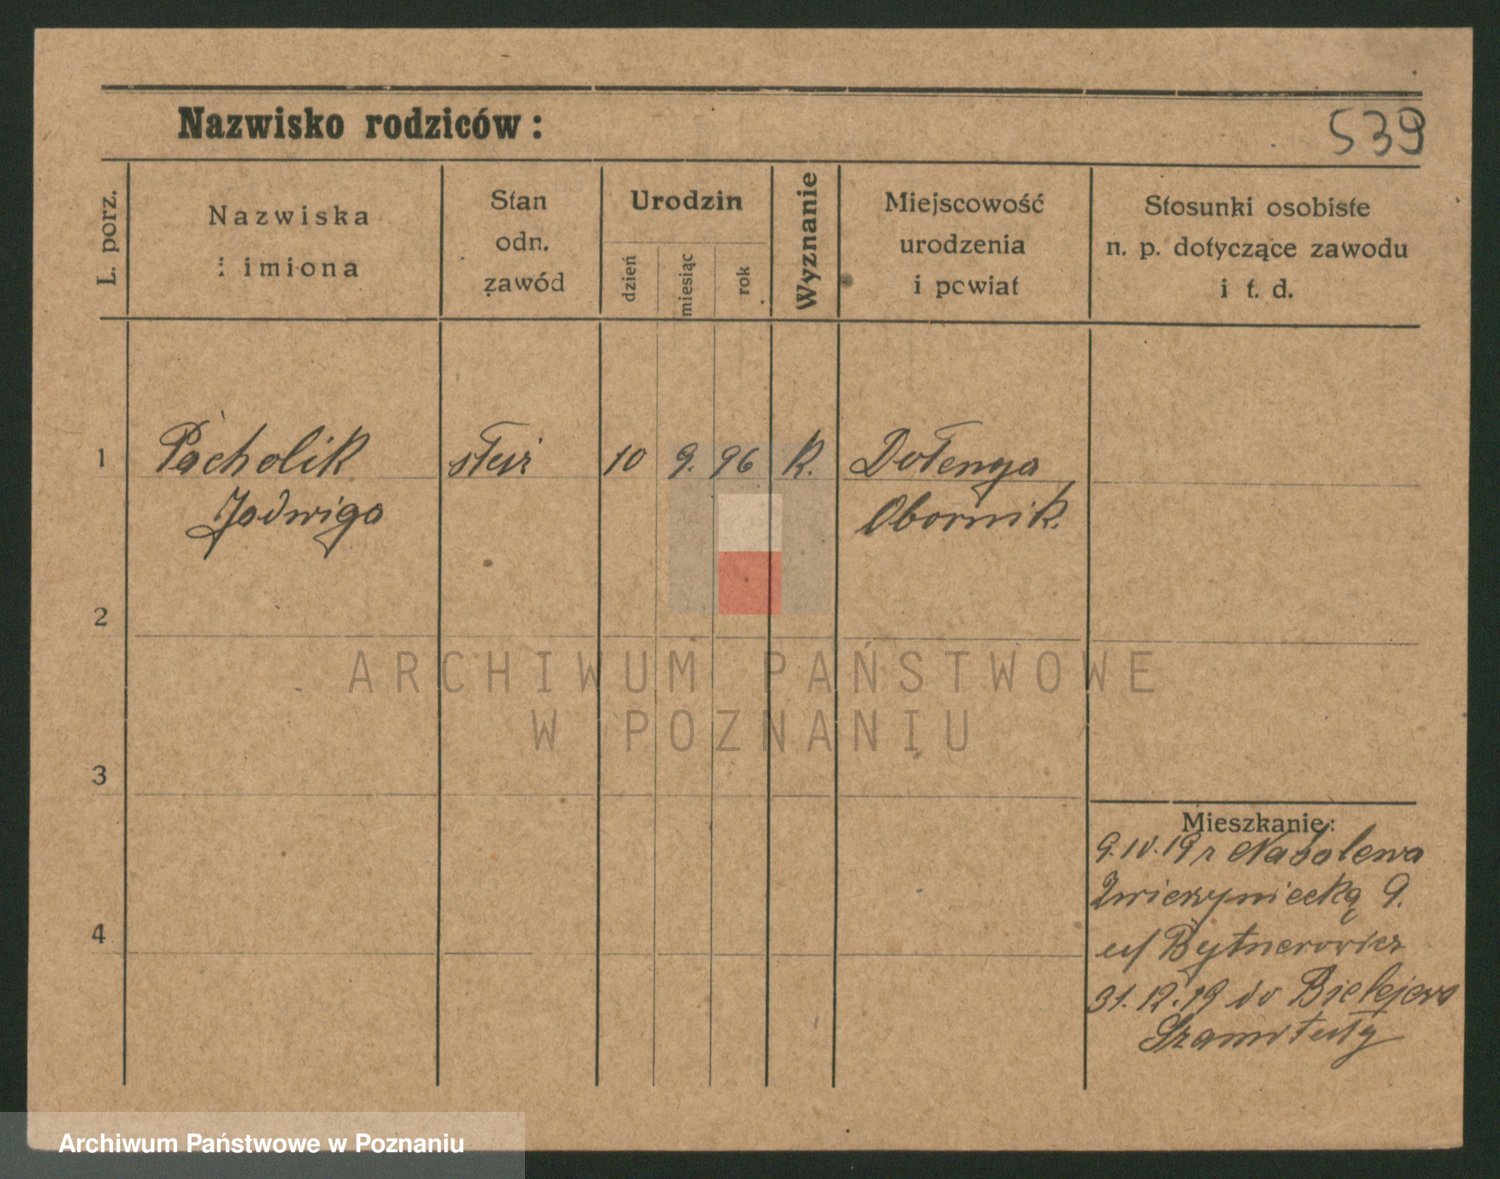 Nazwisko rodziców:
539
L. porz.
Nazwiska
i imiona
Stan
odn.
zawód
Urodzin
dzień
miesiąc
rok
Wyznanie
Miejscowość
urodzenia
i powiat
Stosunki osobiste
n. p. dotyczące zawodu
i t. d.
1
Pacholik
Jadwiga
służ
10
9.
96
K.
Dołenga
Obornik.
2
ARCHIWUM PAŃSTWOWE
W POZNANIU
3
Mieszkanie:
9.IV.19 r
Zwierzyniecką 9.
u/ Bytnerowicz
31.12.19 do Bielejewo
Szamotuły
4
Archiwum Państwowe w Poznaniu